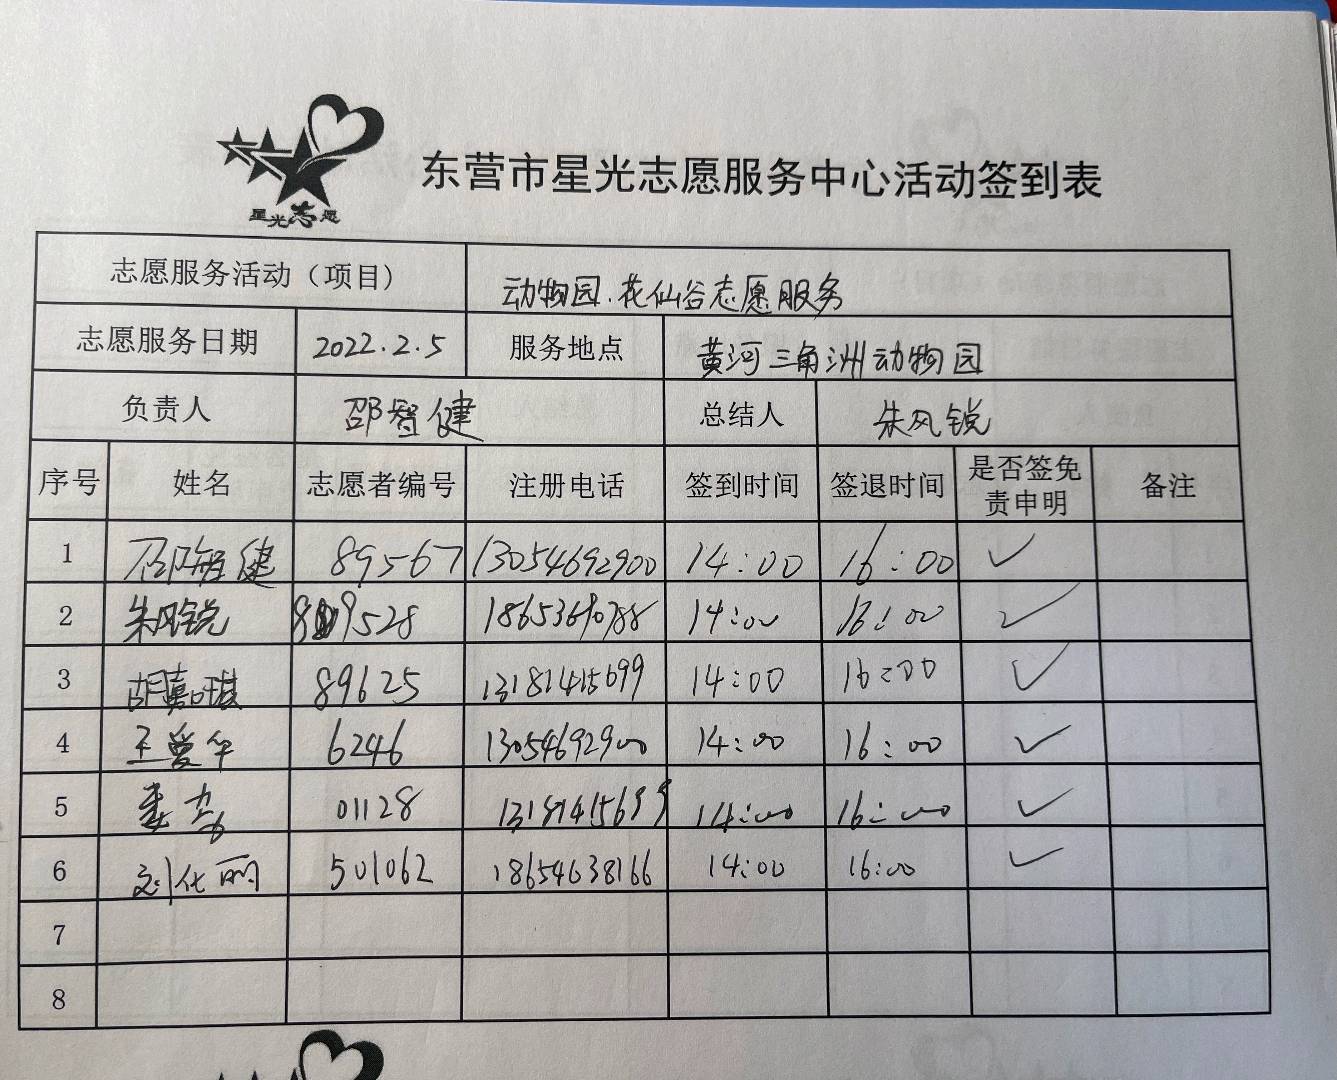 星光志愿
东营市星光志愿服务中心活动签到表
志愿服务活动（项目） 动物园.花仙谷志愿服务
志愿服务日期 2022.2.5 服务地点 黄河三角洲动物园
负责人 邵智健 总结人 朱风锐
序号 姓名 志愿者编号 注册电话 签到时间 签退时间 是否签免责申明 备注
1 邵智健 89567 13054692900 14:00 16:00 ✓
2 朱风锐 89528 14:00 16:00 ✓
3 胡嘉琪 89625 13181415699 14:00 16:00 ✓
4 王爱华 6246 13054692900 14:00 16:00 ✓
5 01128 13181415699 14:00 16:00 ✓
6 刘化丽 501062 18654638166 14:00 16:00 ✓
7
8